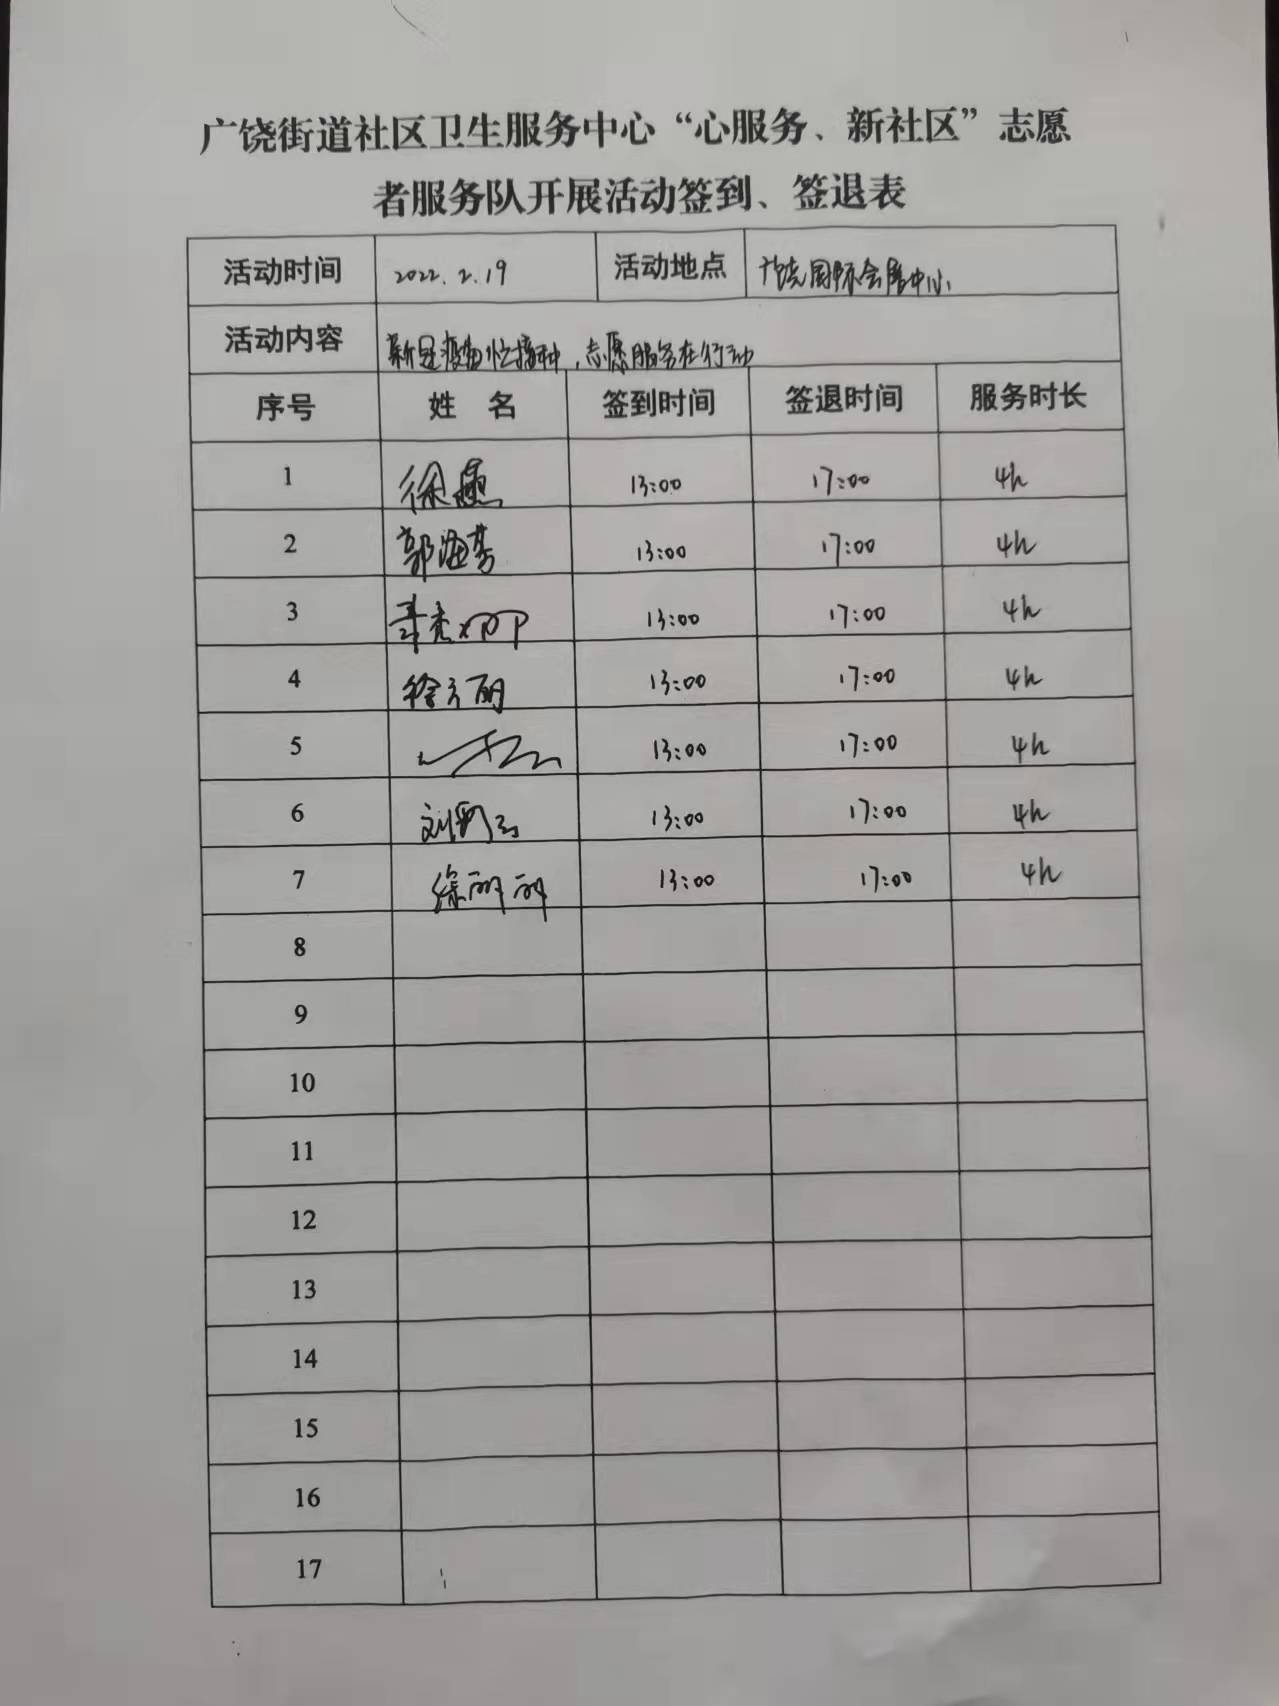 广饶街道社区卫生服务中心“心服务、新社区”志愿
者服务队开展活动签到、签退表
活动时间 2022.2.19 活动地点 广饶国际会展中心
活动内容 新冠疫苗忙接种，志愿服务在行动
序号 姓 名 签到时间 签退时间 服务时长
1 徐 13:00 17:00 4h
2 郭海芳 13:00 17:00 4h
3 13:00 17:00 4h
4 徐立丽 13:00 17:00 4h
5 13:00 17:00 4h
6 刘 13:00 17:00 4h
7 徐丽丽 13:00 17:00 4h
8
9
10
11
12
13
14
15
16
17